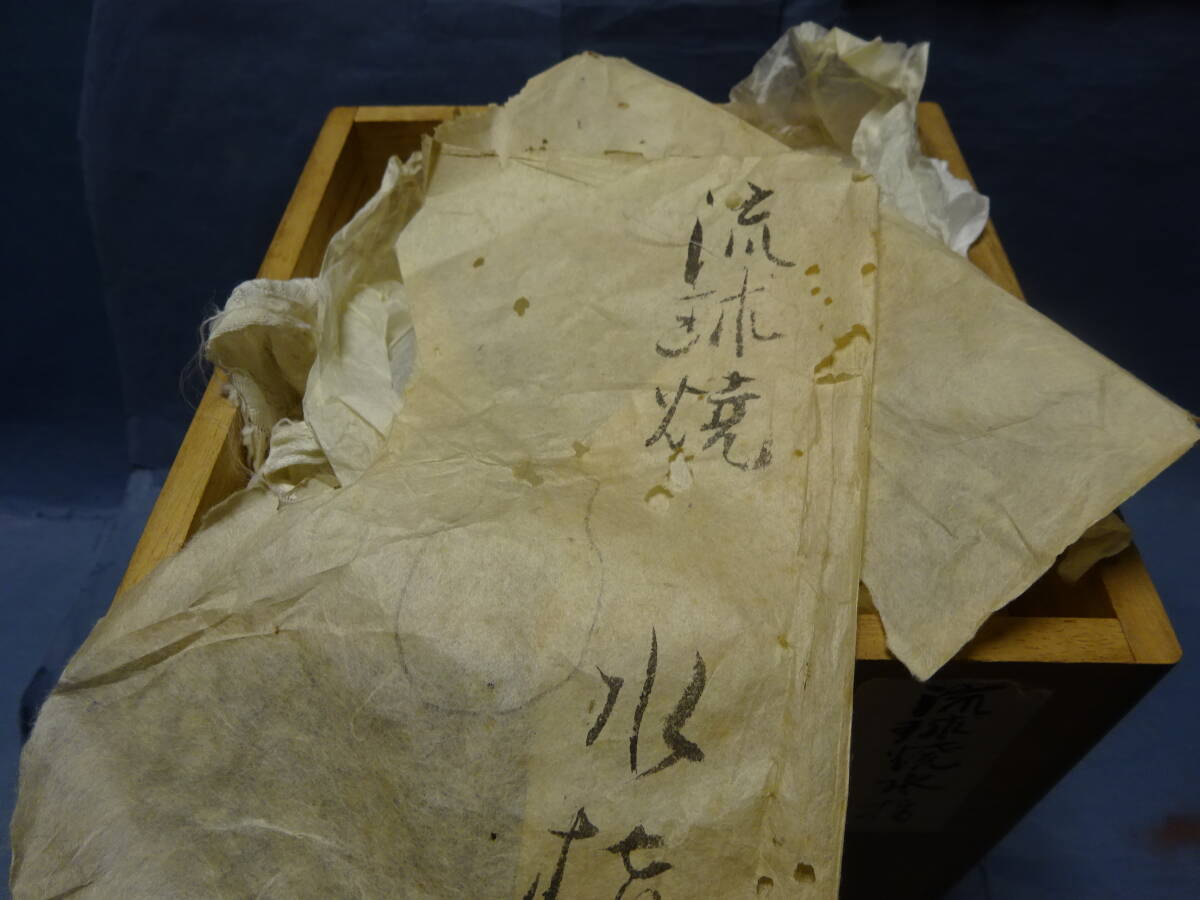 流球焼
水指
流球焼水指